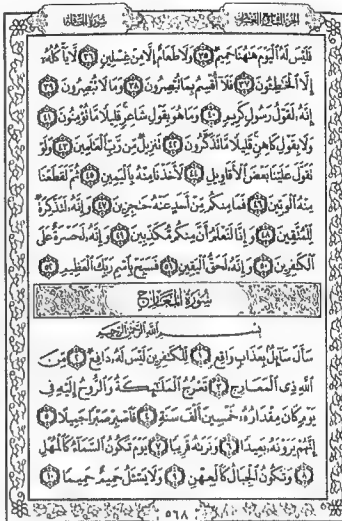 الجزء التاسع والعشرون
سورة الحاقة
فَلَيْسَ لَهُ الْيَوْمَ هَاهُنَا حَمِيمٌ ٣٥ وَلَا طَعَامٌ إِلَّا مِنْ غِسْلِينٍ ٣٦ لَّا يَأْكُلُهُ
إِلَّا الْخَاطِئُونَ ٣٧ فَلَا أُقْسِمُ بِمَا تُبْصِرُونَ ٣٨ وَمَا لَا تُبْصِرُونَ ٣٩
إِنَّهُ لَقَوْلُ رَسُولٍ كَرِيمٍ ٤٠ وَمَا هُوَ بِقَوْلِ شَاعِرٍ قَلِيلًا مَّا تُؤْمِنُونَ ٤١
وَلَا بِقَوْلِ كَاهِنٍ قَلِيلًا مَّا تَذَكَّرُونَ ٤٢ تَنزِيلٌ مِّن رَّبِّ الْعَالَمِينَ ٤٣ وَلَوْ
تَقَوَّلَ عَلَيْنَا بَعْضَ الْأَقَاوِيلِ ٤٤ لَأَخَذْنَا مِنْهُ بِالْيَمِينِ ٤٥ ثُمَّ لَقَطَعْنَا
مِنْهُ الْوَتِينَ ٤٦ فَمَا مِنكُم مِّنْ أَحَدٍ عَنْهُ حَاجِزِينَ ٤٧ وَإِنَّهُ لَتَذْكِرَةٌ
لِّلْمُتَّقِينَ ٤٨ وَإِنَّا لَنَعْلَمُ أَنَّ مِنكُم مُّكَذِّبِينَ ٤٩ وَإِنَّهُ لَحَسْرَةٌ عَلَى
الْكَافِرِينَ ٥٠ وَإِنَّهُ لَحَقُّ الْيَقِينِ ٥١ فَسَبِّحْ بِاسْمِ رَبِّكَ الْعَظِيمِ ٥٢
سورة المعارج
بِسْمِ اللَّهِ الرَّحْمَٰنِ الرَّحِيمِ
سَأَلَ سَائِلٌ بِعَذَابٍ وَاقِعٍ ١ لِّلْكَافِرِينَ لَيْسَ لَهُ دَافِعٌ ٢ مِّنَ
اللَّهِ ذِي الْمَعَارِجِ ٣ تَعْرُجُ الْمَلَائِكَةُ وَالرُّوحُ إِلَيْهِ فِي
يَوْمٍ كَانَ مِقْدَارُهُ خَمْسِينَ أَلْفَ سَنَةٍ ٤ فَاصْبِرْ صَبْرًا جَمِيلًا ٥
إِنَّهُمْ يَرَوْنَهُ بَعِيدًا ٦ وَنَرَاهُ قَرِيبًا ٧ يَوْمَ تَكُونُ السَّمَاءُ كَالْمُهْلِ
٨ وَتَكُونُ الْجِبَالُ كَالْعِهْنِ ٩ وَلَا يَسْأَلُ حَمِيمٌ حَمِيمًا ١٠
٥٦٨